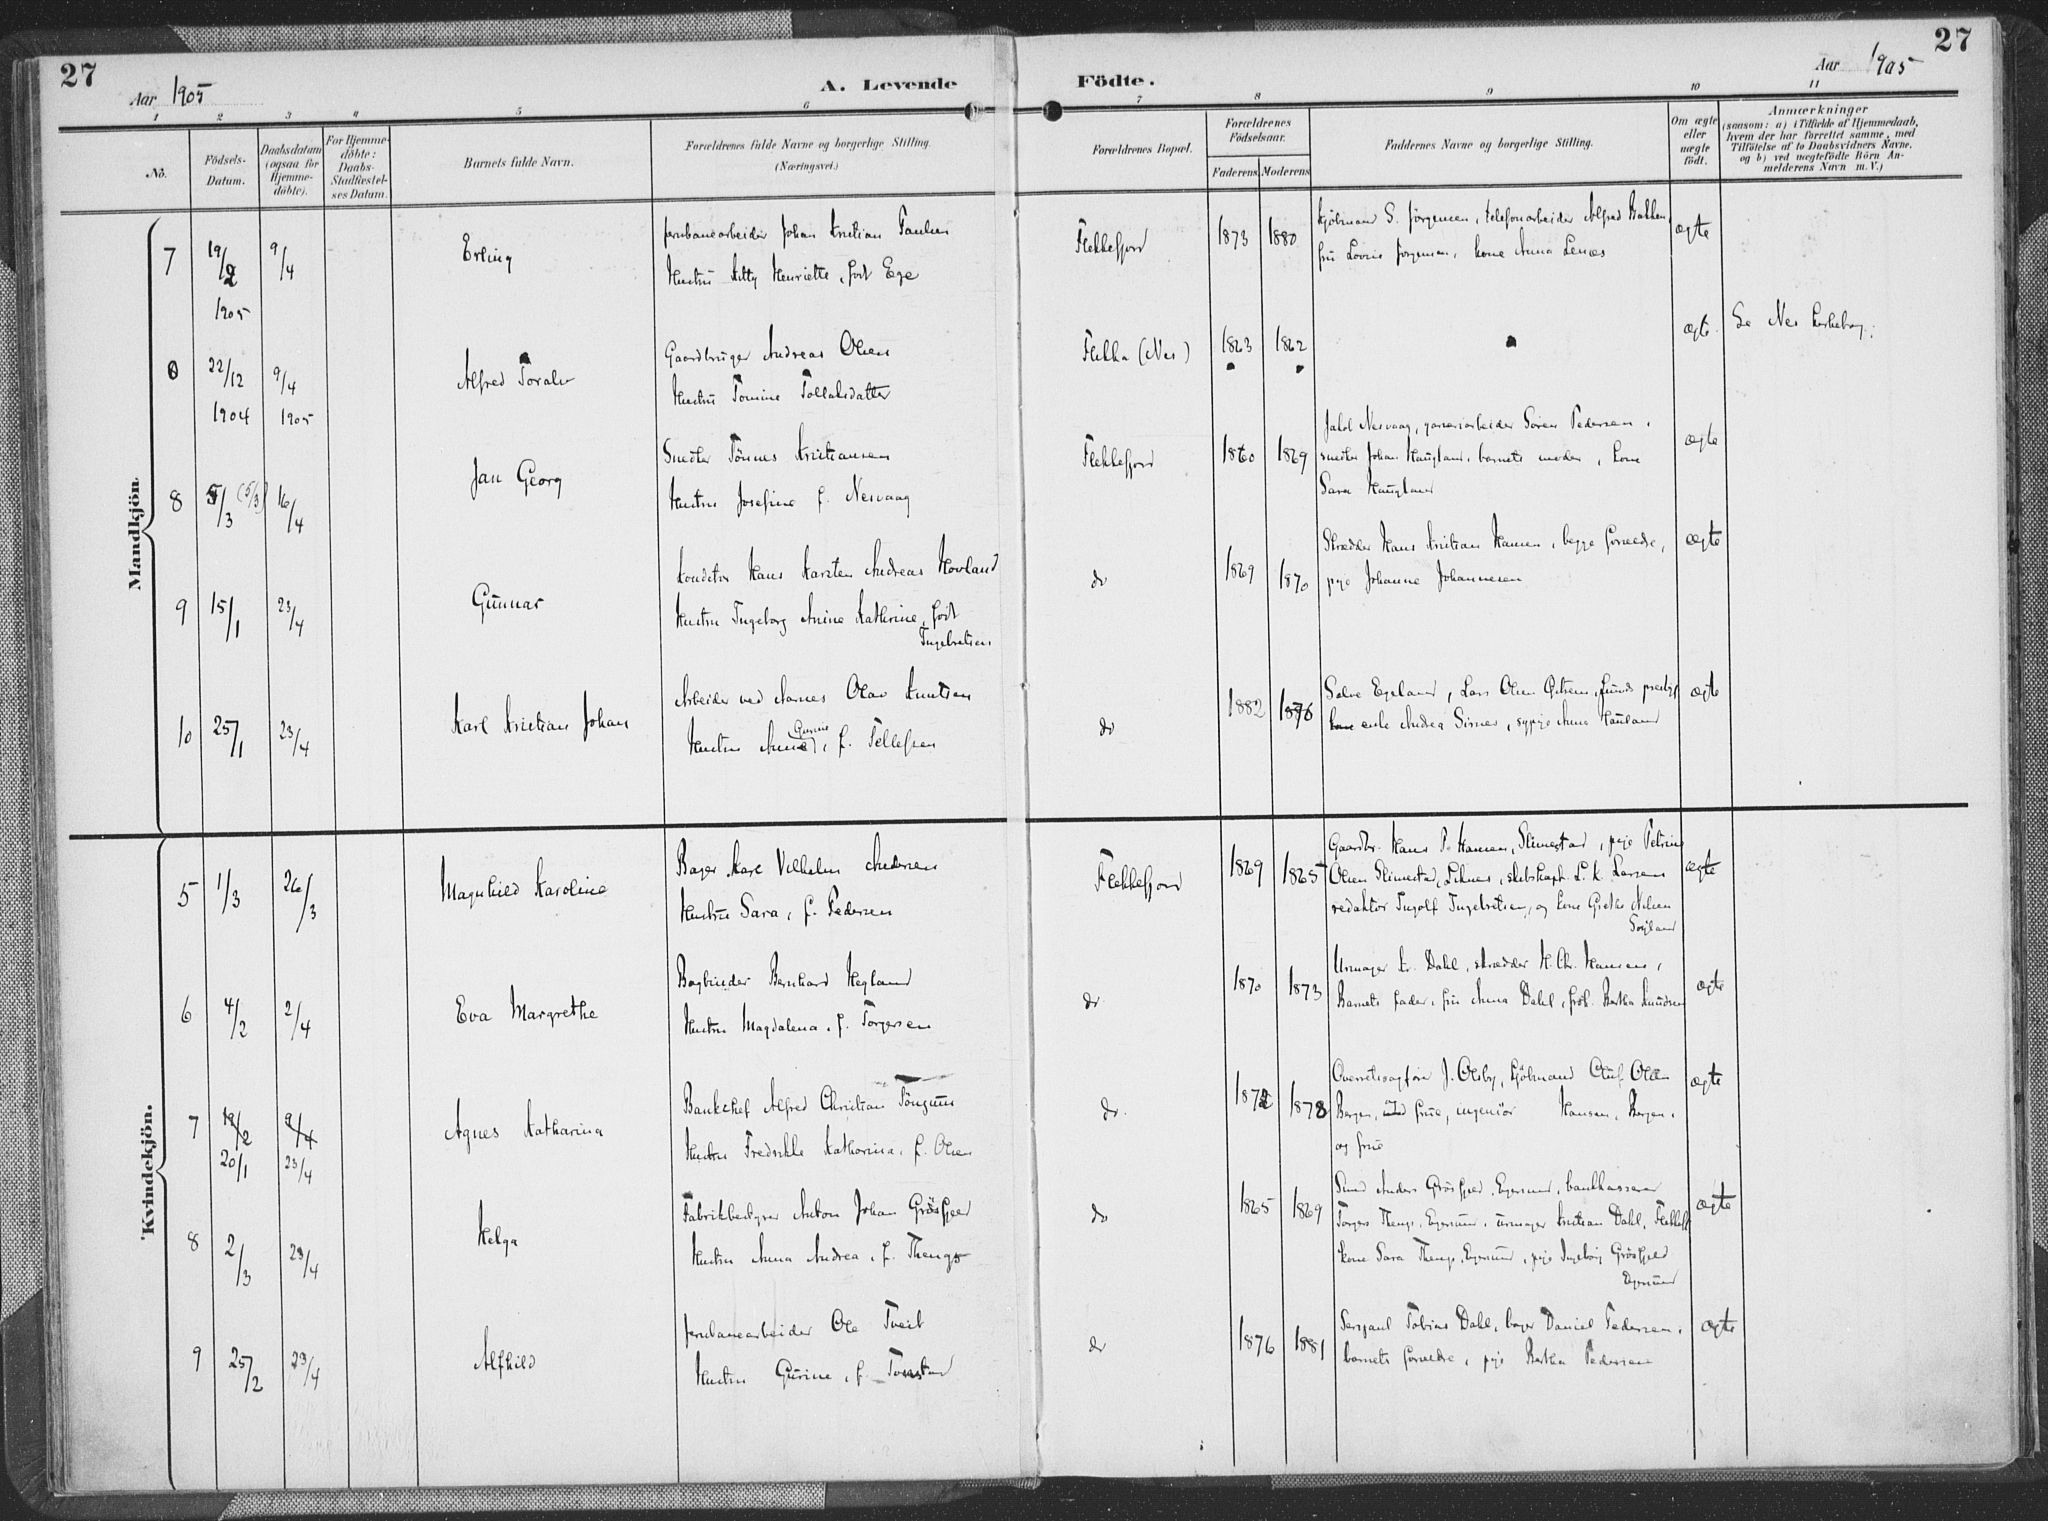 27
Aar 1905
A. Levende
Födte.
Aar 1905
27
1 2 3 4 5 6 7 8 9 10 11
No.
Födsels-
Datum.
Daabsdatum
(ogsaa for
Hjemme-
döbte).
For Hjemme-
döbte:
Daabs-
Stadfæstel-
ses Datum.
Barnets fulde Navn.
Forældrenes fulde Navne og borgerlige Stilling.
(Næringsvei.)
Forældrenes Bopæl.
Forældrenes
Födselsaar.
Faderens
Moderens
Faddernes Navne og borgerlige Stilling.
Om ægte
eller
uægte
födt.
Anmærkninger
(saasom: a) i Tilfælde af Hjemmedaab,
hvem der har forrettet samme, med
Tilföielse af to Daabsvidners Navne,
og b) ved uægtefödte Börn An-
melderens Navn m. V.)
Mandkjön.
7 19/2 9/4 Erling jernbanearbeider Johan Kristian Paulsen Flekkefjord 1873 1880 kjöbmand S. Jörgensen, telefonarbeider Alfred Bakken, ægte
1905 Hustru Kitty Henriette, født Ege fru Lovise Jörgensen, kone Anna Lenæs
0 22/12 9/4 Alfred Toralv Gaardbruger Andreas Olsen Flikka (Nes) 1863 1862 ægte Se Nes kirkebog.
1904 1905 Hustru Tomine Tollaksdatter
8 5/3 (5/3) 16/4 Jan Georg Snedker Tönnes Kristiansen Flekkefjord 1860 1869 Jakob Nesvaag, garveriarbeider Sören Pedersen, ægte
Hustru Josefine f. Nesvaag snedker Johan Haugland, barnets moder, kone
Sara Haugland
9 15/1 23/4 Gunnar Konditor Hans Karsten Andreas Hovland do 1869 1870 Skrædder Hans Kristian Hansen, begge forældre, ægte
Hustru Ingeborg Anine Kathrine, født pige Johanne Johannesen
Ingebretsen
10 25/1 23/4 Karl Kristian Johan Arbeider ved Aarnes Olav Knutsen do 1882 1876 Salve Egeland, Lars Olsen Östrem, Lunds prestegj. ægte
Hustru Anne Gurine, f. Tellefsen enke Andrea Sirnes, sypige Anna Haugland
Kvindekjön.
5 1/3 26/3 Magnhild Karoline Bager Karl Vilhelm Andersen Flekkefjord 1869 1865 Gaardbr. Hans P. Hansen, Slimestad, pige Petrine ægte
Hustru Sara, f. Pedersen Olsen Slimestad, Liknes, skibskapt. L. K. Larsen
redaktör Ingolf Ingebretsen, og kone Grethe Nilsen
6 4/2 2/4 Eva Margrethe Bogbinder Bernhard Hegland do. 1870 1873 Urmager Kr. Dahl, skrædder H. Chr. Hansen, ægte
Hustru Magdalena, f. Torgersen Barnets fader, fru Anna Dahl, frök. Bertha Knudsen
7 19/2 9/4 Agnes Katharina Bankchef Alfred Christian Tönsum do. 1872 1878 Overretssagförer J. Olsby, kjöbmand Oluf Olsen ægte
20/1 23/4 Hustru Fredrikke Katharina, f. Olsen Bergen, med frue, ingeniör Hansen, Bergen,
og frue
8 2/3 23/4 Helga Fabrikbestyrer Anton Johan Grösfjeld do 1865 1869 Smed Anders Grösfjeld, Egersund, bankkasserer ægte
Hustru Anna Andrea, f. Thengs Torger Thengs, Egersund, urmager Kristian Dahl, Flekkefj.
kone Sara Thengs, Egersund, pige Ingeborg Grösfjeld
Egersund
9 25/2 23/4 Alfhild jernbanearbeider Ole Tveit do 1876 1881 Sersjant Tobias Dahl, bager Daniel Pedersen, ægte
Hustru Gurine, f. Tonstad barnets forældre, pige Bertha Pedersen